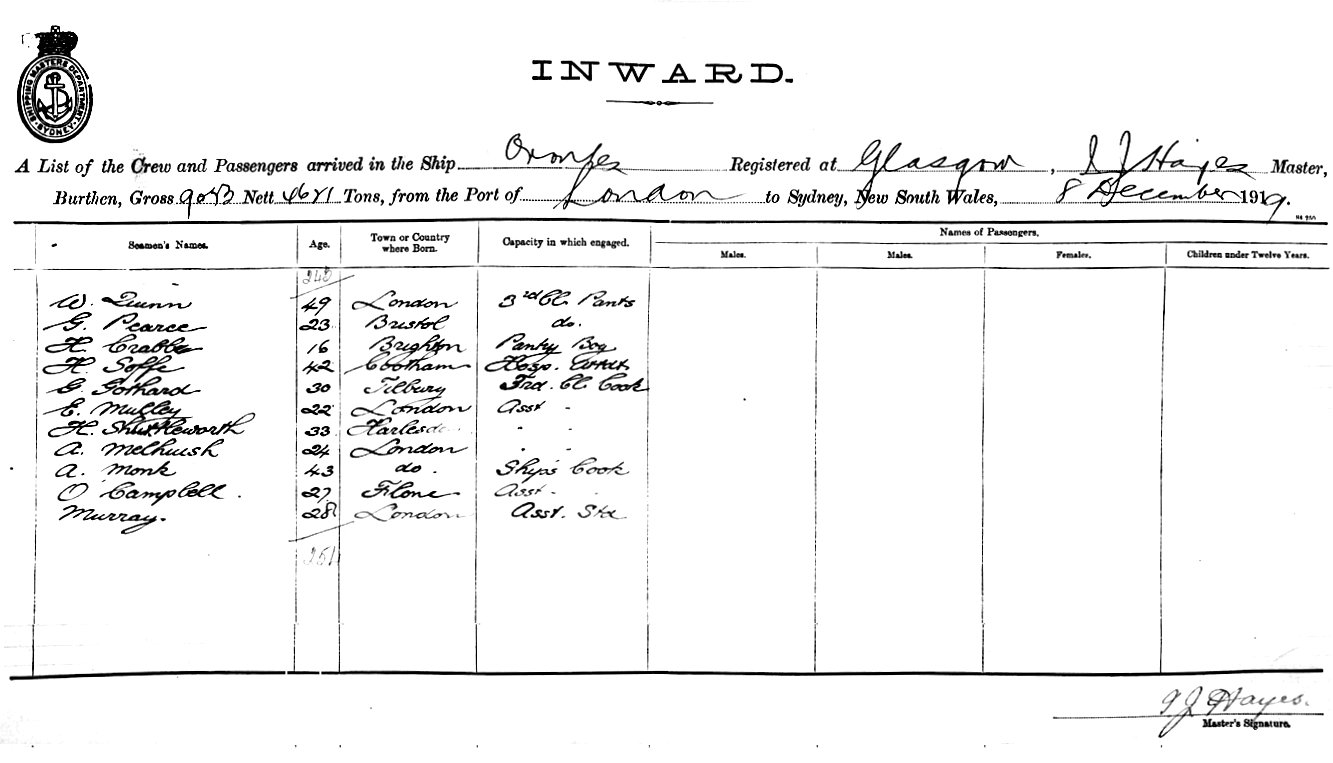 SHIPPING MASTERS DEPARTMENT. SYDNEY.
INWARD.
A List of the Crew and Passengers arrived in the Ship Orontes Registered at Glasgow, J Hayes Master,
Burthen, Gross Nett Tons, from the Port of London to Sydney, New South Wales, 8 December 1919.
Seamen's Names. Age. Town or Country where Born. Capacity in which engaged. Names of Passengers.
Males. Males. Females. Children under Twelve Years.
W. Quinn 49 London 3rd Cl. Pants
G. Pearce 23 Bristol do.
H. Crabbe 16 Brighton Pantry Boy
H. Soffe 42 Cootham Hosp.
G. Gothard 30 Tilbury Cl. Cook
E. Mulley 22 London Asst -
H. Shuttleworth 33 - -
A. Melhuish 24 London - -
A. Monk 43 do. Ship's Cook
O Campbell. 27 Asst -
Murray. 28 London Asst. Std
251
J Hayes.
Master's Signature.